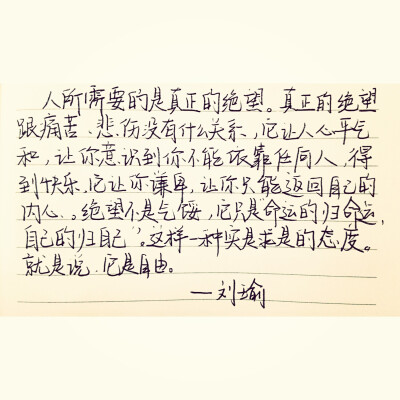 人所需要的是真正的绝望。真正的绝望
跟痛苦、悲伤没有什么关系,它让人心平气
和,让你意识到你不能依靠任何人,得
到快乐,它让你谦卑,让你只能返回自己的
内心。绝望不是气馁,它只是命运的归命运,
自己的归自己,这样一种实是求是的态度。
就是说、它是自由。
—刘瑜